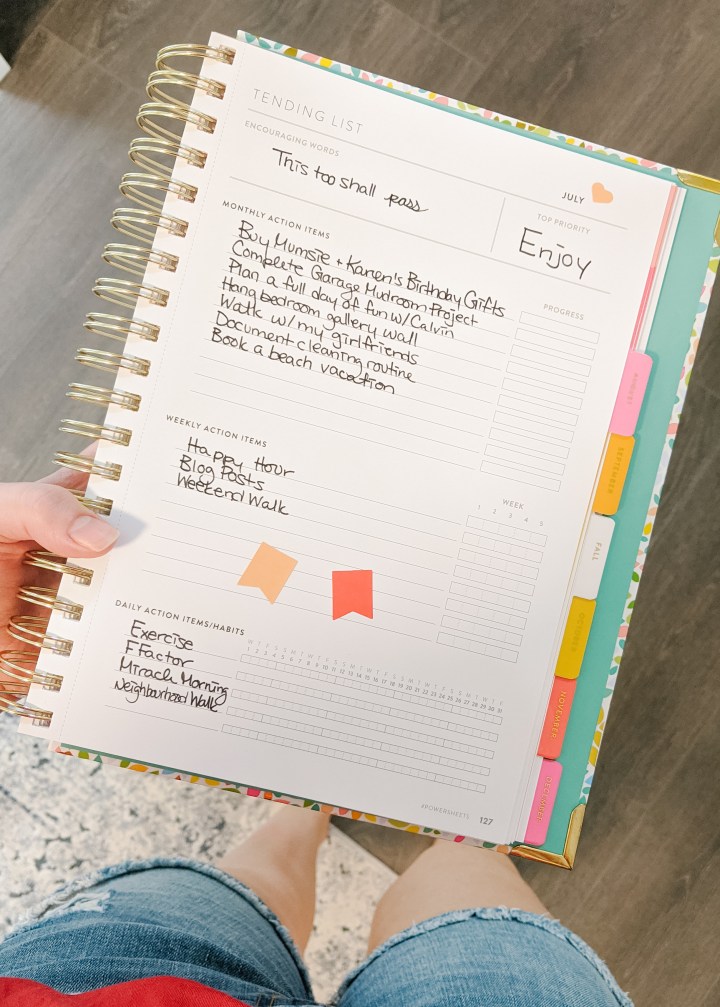 TENDING LIST
ENCOURAGING WORDS
This too shall pass
JULY
TOP PRIORITY
Enjoy
MONTHLY ACTION ITEMS
PROGRESS
Buy Mumsie + Karen's Birthday Gifts
Complete Garage Mudroom Project
Plan a full day of fun w/ Calvin
Hang bedroom gallery wall
Walk w/ my girlfriends
Document cleaning routine
Book a beach vacation
WEEKLY ACTION ITEMS
WEEK
1 2 3 4 5
Happy Hour
Blog Posts
Weekend Walk
DAILY ACTION ITEMS/HABITS
W T F S S M T W T F S S M T W T F S S M T W T F S S M T W T F
1 2 3 4 5 6 7 8 9 10 11 12 13 14 15 16 17 18 19 20 21 22 23 24 25 26 27 28 29 30 31
Exercise
F Factor
Miracle Morning
Neighbourhood Walk
#POWERSHEETS 127
AUGUST
SEPTEMBER
FALL
OCTOBER
NOVEMBER
DECEMBER